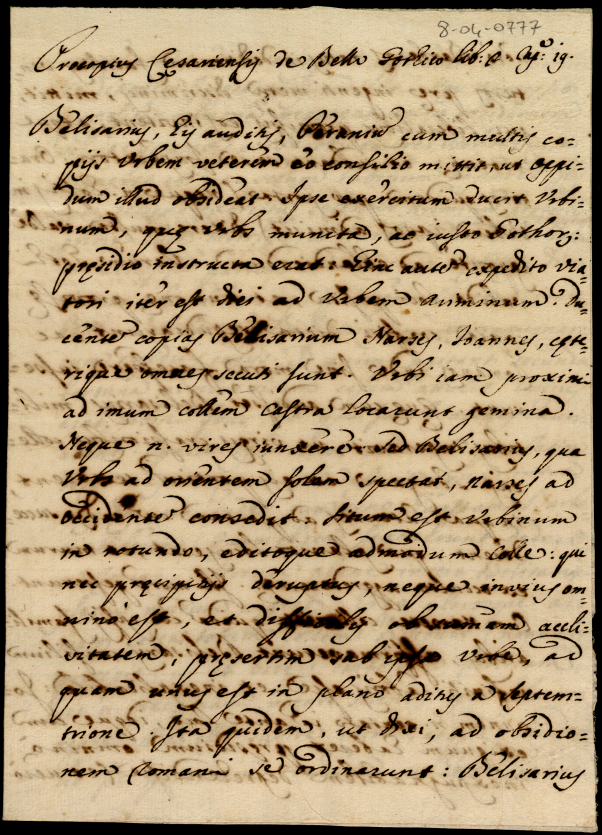 8-04-0777
Procopius Cęsariensis de Bello Gothico lib. 2 Cap. 19.
Belisarius, his auditis, Peranium cum multis co=
pijs Urbem veterem eo consilio mittit, ut oppi=
dum illud obsideat. Ipse exercitum ducit Urbi=
num, quę urbs munita, ac iusto Gothor;
pręsidio instructa erat. Hinc autem expedito via=
tori iter est diei ad Urbem Ariminum. Du=
cente copias Belisarium Narses, Ioannes, cęte=
rique omnes secuti sunt. Urbi iam proximi
ad imum collem castra locarunt gemina.
Neque n. vires iunxere: sed Belisarius, qua
Urbs ad orientem solem spectat, Narses ad
occidente consedit. Situm est Urbinum
in rotundo, editoque admodum colle: qui
nec pręcipitijs deruptus, neque invius om=
nino est, et difficilis ob summam accli=
vitatem, pręsertim sub ipsa urbe, ad
quam unus est in plano aditus a septem=
trione. Ita quidem, ut dixi, ad obsidio=
nem romani se ordinarunt: Belisarius